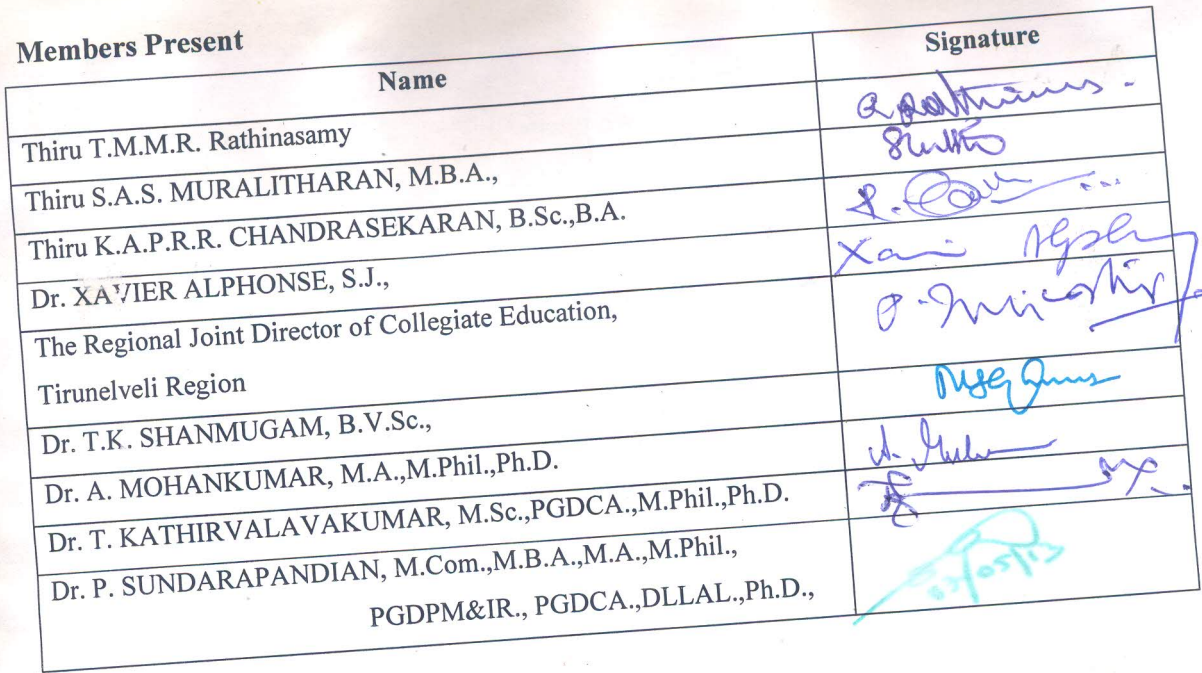 Members Present
Name Signature
Thiru T.M.M.R. Rathinasamy
Thiru S.A.S. MURALITHARAN, M.B.A.,
Thiru K.A.P.R.R. CHANDRASEKARAN, B.Sc.,B.A.
Dr. XAVIER ALPHONSE, S.J.,
The Regional Joint Director of Collegiate Education,
Tirunelveli Region
Dr. T.K. SHANMUGAM, B.V.Sc.,
Dr. A. MOHANKUMAR, M.A.,M.Phil.,Ph.D.
Dr. T. KATHIRVALAVAKUMAR, M.Sc.,PGDCA.,M.Phil.,Ph.D.
Dr. P. SUNDARAPANDIAN, M.Com.,M.B.A.,M.A.,M.Phil.,
PGDPM&IR., PGDCA.,DLLAL.,Ph.D.,